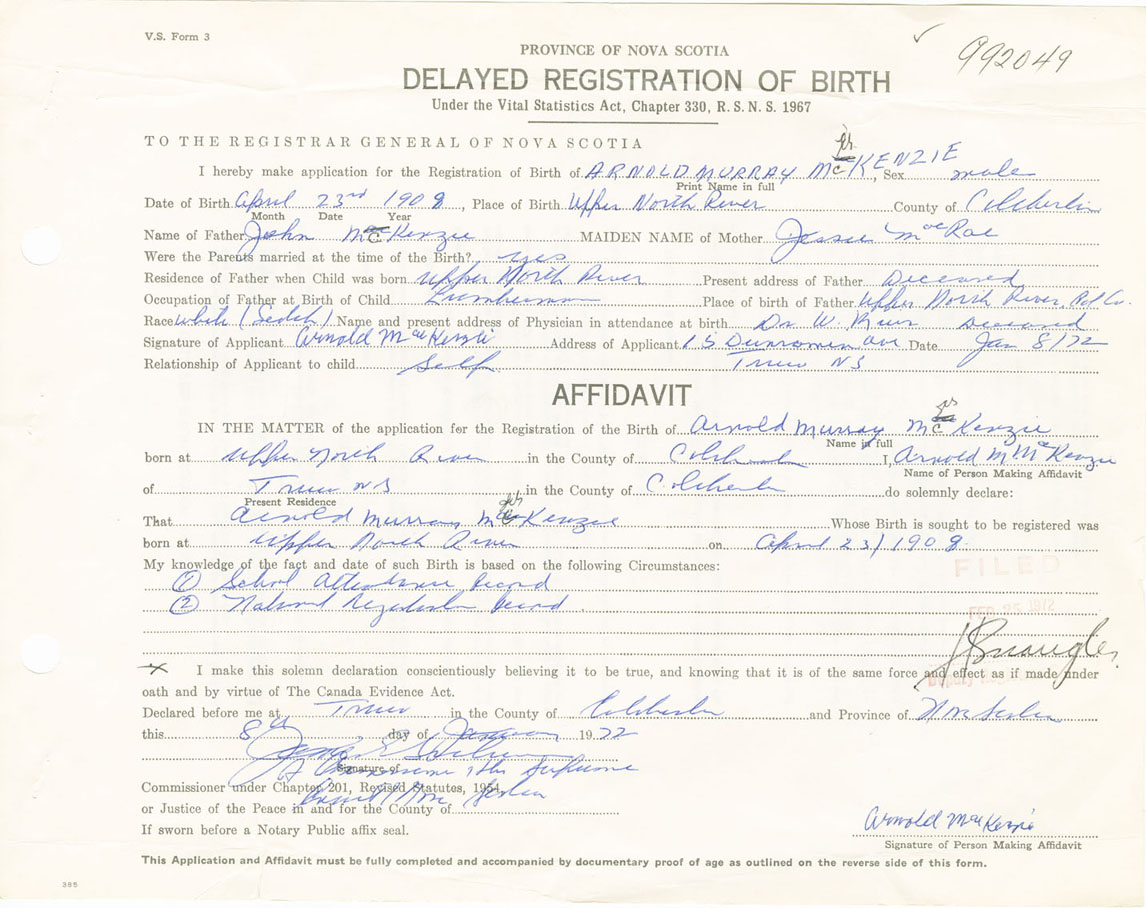 V.S. Form 3
PROVINCE OF NOVA SCOTIA
992049
DELAYED REGISTRATION OF BIRTH
Under the Vital Statistics Act, Chapter 330, R. S. N. S. 1967
TO THE REGISTRAR GENERAL OF NOVA SCOTIA
I hereby make application for the Registration of Birth of ARNOLD MURRAY McKENZIE, Sex male
Print Name in full
Date of Birth April 23rd 1908, Place of Birth Upper North River County of Colchester
Month Date Year
Name of Father John McKenzie MAIDEN NAME of Mother Jessie MacRae
Were the Parents married at the time of the Birth? yes
Residence of Father when Child was born Upper North River Present address of Father Deceased
Occupation of Father at Birth of Child Lumberman Place of birth of Father Upper North River, Col Co.
Race White (Scotch) Name and present address of Physician in attendance at birth Dr W. Deceased
Signature of Applicant Arnold MacKenzie Address of Applicant 15 Dunromin Ave Date Jan 8/72
Relationship of Applicant to child Self Truro NS
AFFIDAVIT
IN THE MATTER of the application for the Registration of the Birth of Arnold Murray McKenzie
Name in full
born at Upper North River in the County of Colchester I, Arnold M MacKenzie
Name of Person Making Affidavit
of Truro NS in the County of Colchester do solemnly declare:
Present Residence
That Arnold Murray McKenzie Whose Birth is sought to be registered was
born at Upper North River on April 23/1908
My knowledge of the fact and date of such Birth is based on the following Circumstances:
FILED
① School Attendance Record
② National Registration Record
FEB 25 1972
I make this solemn declaration conscientiously believing it to be true, and knowing that it is of the same force and effect as if made under
oath and by virtue of The Canada Evidence Act.
Deputy
Declared before me at Truro in the County of Colchester and Province of Nova Scotia
this 8th day of January 1972
A Commissioner of the Supreme
Signature of
Commissioner under Chapter 201, Revised Statutes, 1954,
Court Nova Scotia
or Justice of the Peace in and for the County of
Arnold MacKenzie
If sworn before a Notary Public affix seal.
Signature of Person Making Affidavit
This Application and Affidavit must be fully completed and accompanied by documentary proof of age as outlined on the reverse side of this form.
385